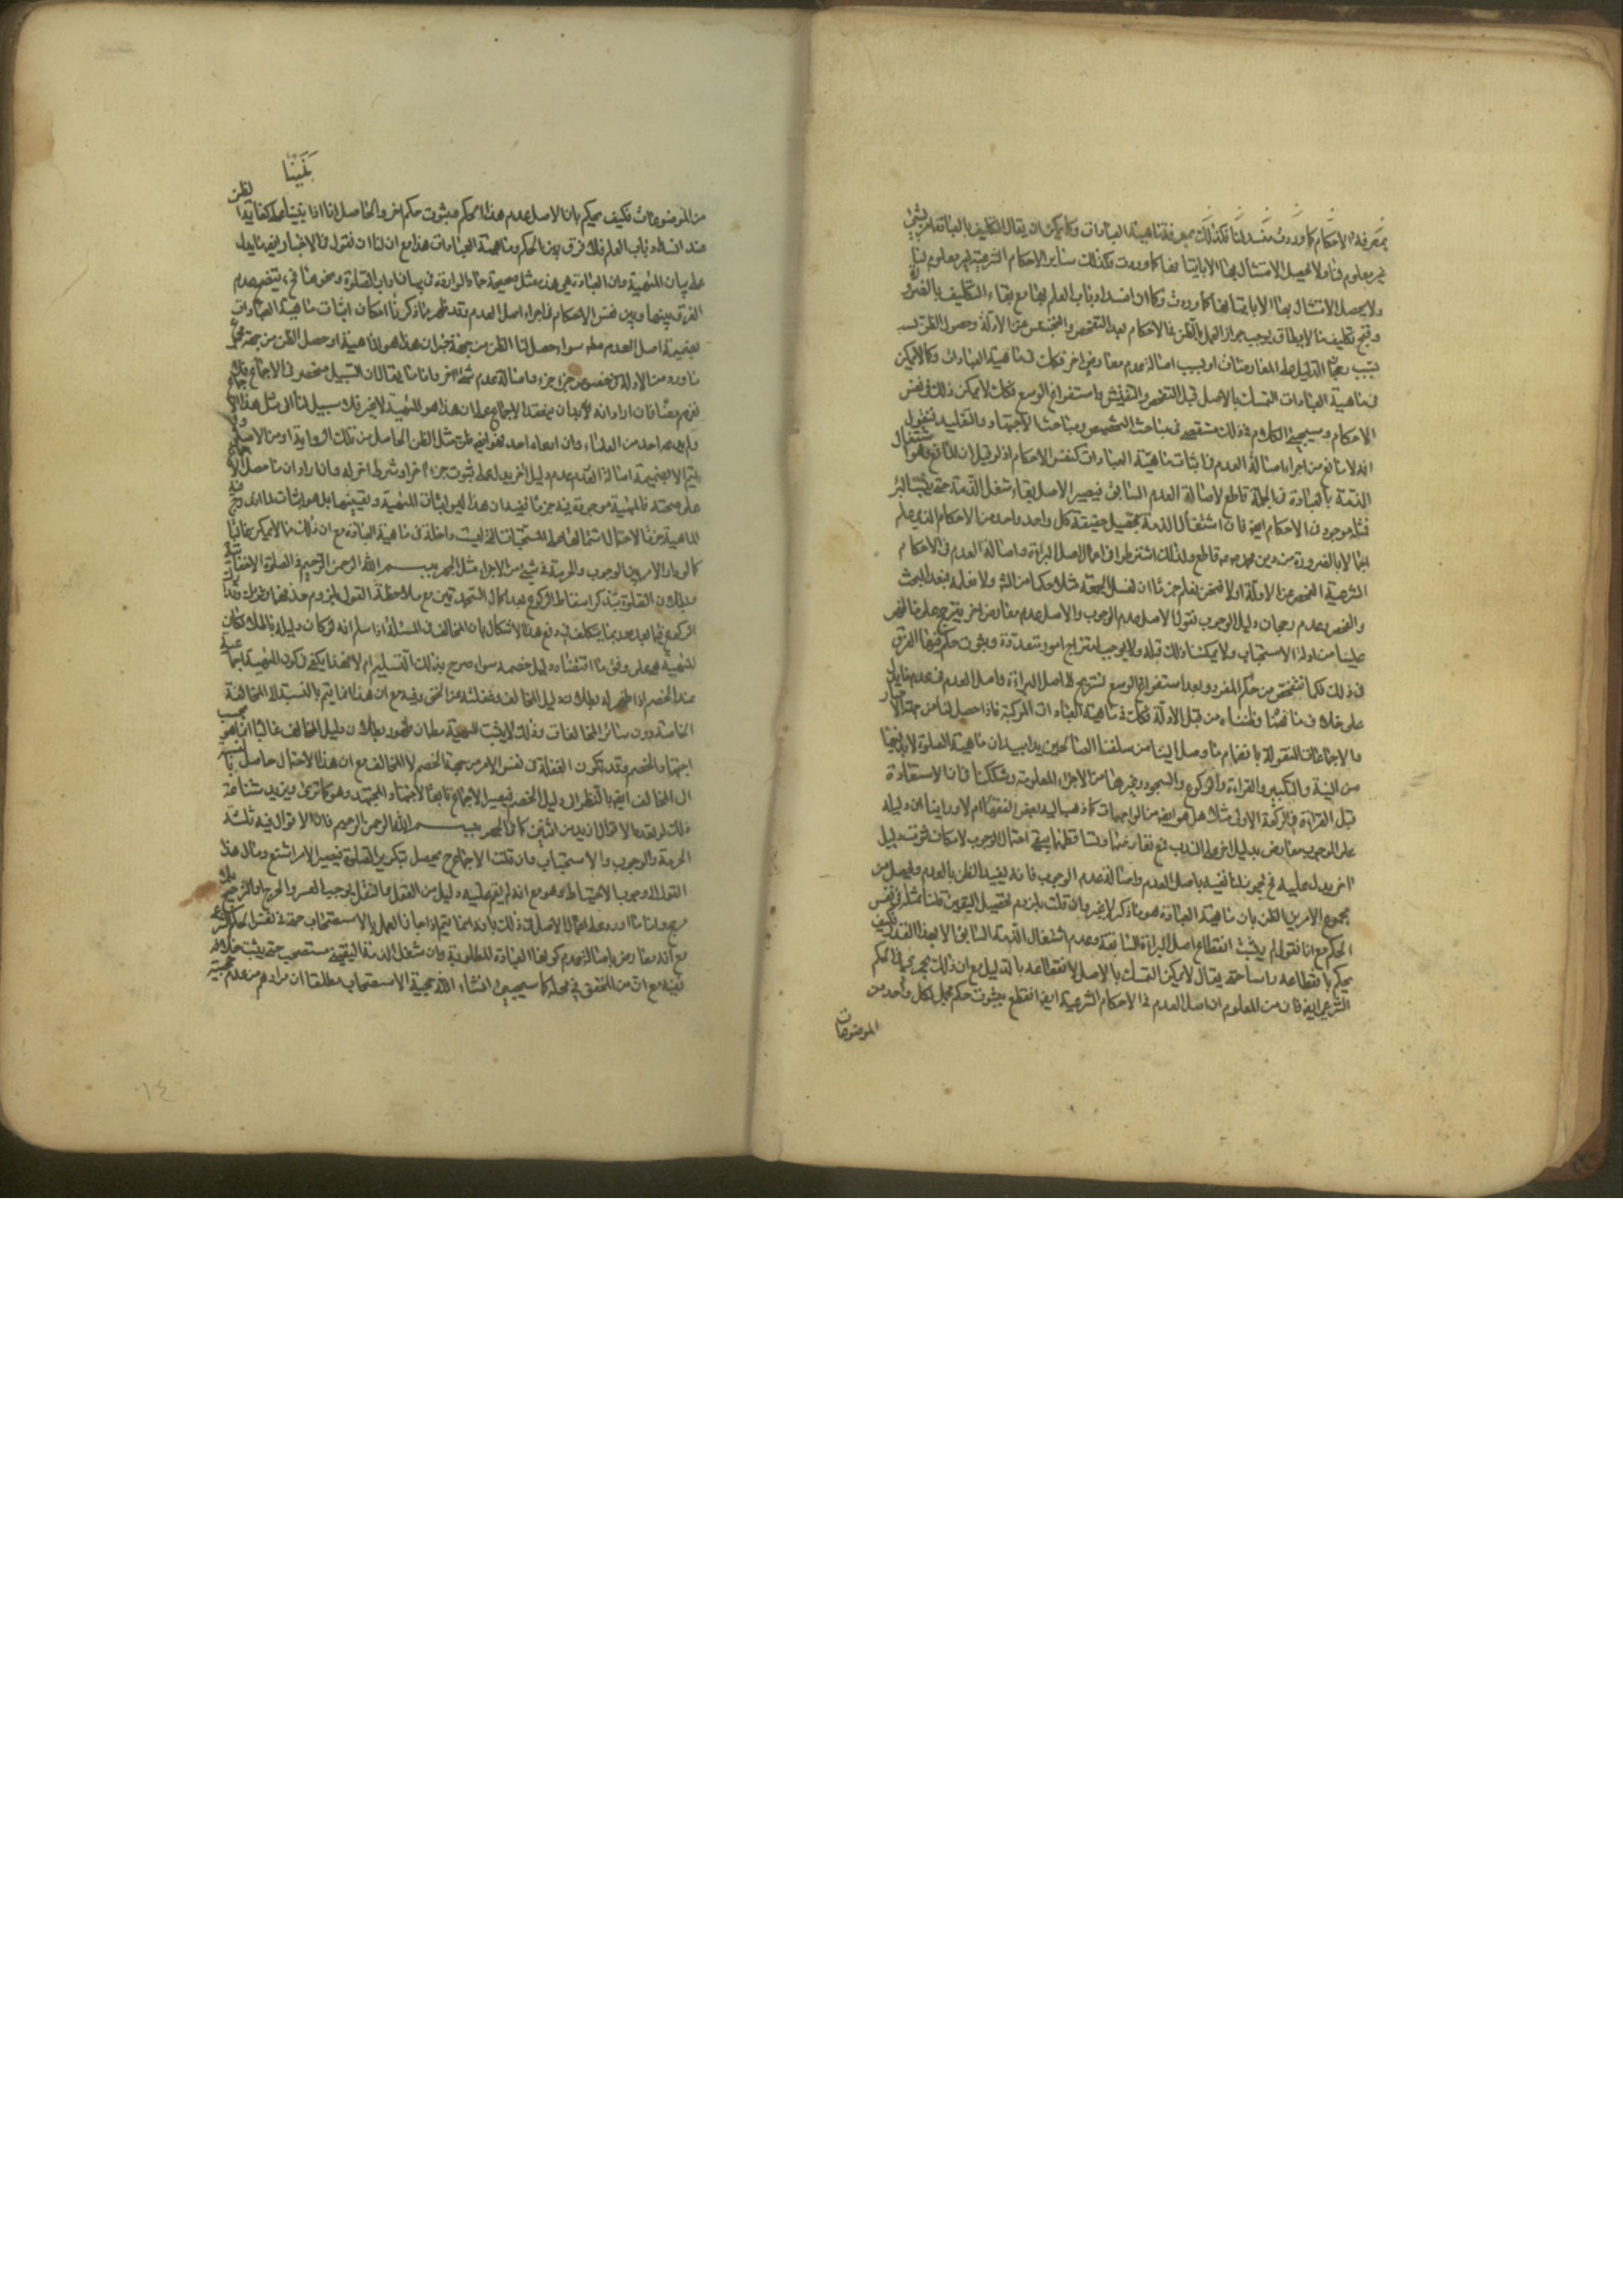 بمعرفة الاحكام كما وردت مفسد لنا فكذلك بمعرفة ماهية العبادات وكما يمكن ان يقال التكليف بالعبادات بشيء
غير معلوم لنا ولا يحصل الامتثال بها الا باتيانها كما وردت فكذلك ساير الاحكام الشرعية غير معلوم لنا
ولا يحصل الامتثال بها الا باتيانها كما وردت وكما ان انسداد باب العلم بها مع بقاء التكليف بالضرورة
وقبح تكليف ما لا يطاق يوجب جواز العمل بالظن في الاحكام بعد التفحص والتجسس عن الادلة وحصول الظن
بسبب رجحان الدليل على المعارضات او بسبب اصالة عدم معارض اخر فكذلك في ماهية العبادات وكما لا يمكن
في ماهية العبادات التمسك بالاصل قبل التفحص والتفتيش واستفراغ الوسع فكذلك لا يمكن ذلك في نفس
الاحكام وسيجيء الكلام في ذلك مستقصى في مباحث التخصيص ومباحث الاجتهاد والتقليد فنقول
انه لا مانع من اجراء اصالة العدم في اثبات ماهية العبادات كنفس الاحكام اذ لو قيل ان المانع هو اشتغال
الذمة بالعبادة في الجملة قاطع لاصالة العدم السابق فيصير الاصل بقاء شغل الذمة حتى يثبت المبرئ
فمثله موجود في الاحكام ايضا فان اشتغال الذمة بتحصيل حقيقة كل واحد واحد من الاحكام الذي يعلم
بها لا بالضرورة من دين محمد ص قاطع ولذلك اشترطوا في اعمال اصل البراءة واصالة العدم في الاحكام
الشرعية الفحص عن الادلة اولا فنحن نعلم جزما ان لغسل الجمعة مثلا حكما من الله ولا نعلمه فبعد البحث
والفحص وعدم رجحان دليل الوجوب نقول الاصل عدم الوجوب والاصل عدم معارض اخر يترجح على ما ظهر
علينا من ادلة الاستحباب ولا يمكننا ذلك قبله ولا يوجب امتزاج امور متعددة وثبوت حكم فيها الفرق
في ذلك فكما نتفحص من حكم المفرد وبعد استفراغ الوسع نستريح الى اصل البراءة واصل العدم في عدم ما يدل
على خلاف ما فهمنا وظنناه من قبل الادلة فكذلك في ماهية العبادات المركبة فاذا حصل لنا من جهة الاخبار
والاجماعات المنقولة بانضمام ما وصل الينا من سلفنا الصالحين يدا بيد ان ماهية الصلوة لا بد فيها
من النية والتكبير والقراءة والركوع والسجود وغيرها من الاجزاء المعلومة وشككنا في ان الاستعاذة
قبل القراءة في الركعة الاولى مثلا هل هو ايضا من الواجبات كما ذهب اليه بعض الفقهاء ام لا وراينا ان دليله
على الوجوب معارض بدليل اخر على الندب فمع تعارضهما وتساقطهما يبقى احتمال الوجوب لامكان ثبوت دليل
اخر يدل عليه فح يجوز لنا نفيه باصل العدم واصالة عدم الوجوب فانه يفيد الظن بالعدم ويحصل من
مجموع الامرين الظن بان ماهية العبادة هو ما ذكر لا غير وان قلت بلزوم تحصيل اليقين قلنا بمثله في نفس
الحكم مع انا نقول لم يثبت انقطاع اصل البراءة السابقة وعدم اشتغال الذمة السابق الا بهذا القدر فكيف
يحكم بانقطاعه راسا حتى يقال لا يمكن التمسك بالاصل لانقطاعه بالدليل مع ان ذلك يجري في الحكم
الشرعي ايضا فان من المعلوم ان اصل العدم في الاحكام الشرعية ايضا انقطع بثبوت حكم مجمل لكل واحد من
الموضوعات
من الموضوعات فكيف يحكم بان الاصل عدم هذا الحكم وثبوت حكم اخر والحاصل انا اذا كفاية الظن
عند انسداد باب العلم فلا فرق بين الحكم وماهية العبادات هذا مع ان لنا ان نقول في الاخبار ايضا ما يدل
على بيان الماهية وان العبادة هي هذه مثل صحيحة حماد الواردة في بيان اداب الصلوة ونحوها فح يتضح عدم
الفرق بينها وبين نفس الاحكام في اجراء اصل العدم وقد ظهر مما ذكرنا امكان اثبات ماهية العبادات
بضميمة اصل العدم مطلقا سواء حصل لنا الظن من جهة خبر ان هذا هو الماهية او حصل الظن من جهة مجموع
ما ورد من الادلة في خصوص جزء جزء واصالة عدم شيء اخر واما ما يقال ان السبيل منحصر في الاجماع
فان اراد انه لا بد ان ينعقد الاجماع على ان هذا هو الماهية لا غير فلا سبيل لنا الى مثل هذا الاجماع
ولم يدعه احد من العلماء وان ادعاه احد فهو ايضا ظن مثل الظن الحاصل من تلك الرواية او من الاصل
لا يتم الا بضميمة اصالة العدم وعدم دليل اخر يدل على ثبوت جزء اخر او شرط اخر له وان اراد ان ما حصل الاجماع
على صحته فالماهية موجودة فيه جزما ففيه ان هذا ليس اثبات الماهية وتعيينها بل هو اثبات
الماهية جزما لاحتمال اشتمالها على المستحبات التي ليست داخلة في ماهية العبادة مع ان ذلك مما لا يمكن غالبا
كما لو دار الامر بين الوجوب والحرمة في شيء من الاجزاء مثل الجهر ببسم الله الرحمن الرحيم في الصلوة الاخفاتية
وبطلان الصلوة بتذكر اسقاط الركوع بعد اكمال السجدتين مع ملاحظة القول بلزوم حذفهما وتدارك
الركوع فيما بعد وربما يتكلف في دفع هذا الاشكال بان المخالف في المسئلة اذا سلم انه لو كان دليله باطلا لكان
الماهية هي على وفق ما اقتضاه دليل خصمه سواء صرح بذلك التسليم ام لا فهذا يكفي في كون الماهية اجماعية
عند الخصم اذا ظهر له بطلان دليل المخالف وغفلته عن الحق وفيه مع ان هذا انما يتم بالنسبة الى المخالفة
الخاصة دون سائر المخالفات وذلك لا يثبت الماهية مطلقا ان ظهور بطلان دليل المخالف غالبا انما هو بحسب
اجتهاد الخصم وقد تكون الغفلة في نفس الامر من جهة الخصم لا المخالف مع ان هذا الاحتمال حاصل بالنسبة
الى المخالف ايضا بالنظر الى دليل الخصم فيصير الاجماع تابعا لاجتهاد المجتهد وهو كما ترى ويزيد شناعة
ذلك لو تعدد الاقوال ازيد من اثنين كما في الجهر ببسم الله الرحمن الرحيم فان الاقوال فيه ثلثة
الحرمة والوجوب والاستحباب وان قلت الاجماع ح يحصل بتكرير الصلوة فيصير الامر اشنع ومال هذا
القول الى وجوب الاحتياط وهو مع انه لم يقم عليه دليل من العقل والنقل يوجب العسر والحرج والترجيح بلا
مرجح واما ما اورد على اعمال الاصل في ذلك بانه انما يتم اذا جاز العمل بالاستصحاب حتى في نفس الحكم الشرعي
مع انه معارض باصالة عدم كونها العبادة المطلوبة وان شغل الذمة اليقيني مستصحب حتى يثبت خلافه
ففيه مع ان من المحقق في محله كما سيجيء انشاء الله حجية الاستصحاب مطلقا ان مرادهم من عدم حجية